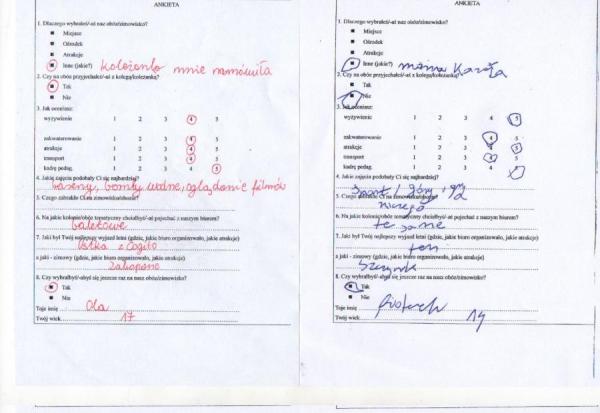 ANKIETA
1. Dlaczego wybrałeś/-aś nasz obóz/zimowisko?
Miejsce
Ośrodek
Atrakcje
Inne (jakie?) koleżanka mnie namówiła
2. Czy na obóz przyjechałeś/-aś z kolegą/koleżanką?
Tak
Nie
3. Jak oceniasz:
wyżywienie 1 2 3 4 5
zakwaterowanie 1 2 3 4 5
atrakcje 1 2 3 4 5
transport 1 2 3 4 5
kadrę pedag. 1 2 3 4 5
4. Jakie zajęcia podobały Ci się najbardziej?
baseny, bomby wodne, oglądanie filmów
5. Czego zabrakło Ci na zimowisku/obozie?
6. Na jakie kolonie/obóz tematyczny chciałbyś/-aś pojechać z naszym biurem?
baletowe
7. Jaki był Twój najlepszy wyjazd letni (gdzie, jakie biuro organizowało, jakie atrakcje)
Ustka z Cogito
a jaki - zimowy (gdzie, jakie biuro organizowało, jakie atrakcje)
Zakopane
8. Czy wybrałbyś/-abyś się jeszcze raz na nasz obóz/zimowisko?
Tak
Nie
Twoje imię Ola
Twój wiek 17
ANKIETA
1. Dlaczego wybrałeś/-aś nasz obóz/zimowisko?
Miejsce
Ośrodek
Atrakcje
Inne (jakie?) mama kazała
2. Czy na obóz przyjechałeś/-aś z kolegą/koleżanką?
Tak
Nie
3. Jak oceniasz:
wyżywienie 1 2 3 4 5
zakwaterowanie 1 2 3 4 5
atrakcje 1 2 3 4 5
transport 1 2 3 4 5
kadrę pedag. 1 2 3 4 5
4. Jakie zajęcia podobały Ci się najbardziej?
Sport, góry
5. Czego zabrakło Ci na zimowisku/obozie?
niczego
6. Na jakie kolonie/obóz tematyczny chciałbyś/-aś pojechać z naszym biurem?
te same
7. Jaki był Twój najlepszy wyjazd letni (gdzie, jakie biuro organizowało, jakie atrakcje)
ten
a jaki - zimowy (gdzie, jakie biuro organizowało, jakie atrakcje)
Szczyrk
8. Czy wybrałbyś/-abyś się jeszcze raz na nasz obóz/zimowisko?
Tak
Nie
Twoje imię
Twój wiek 14